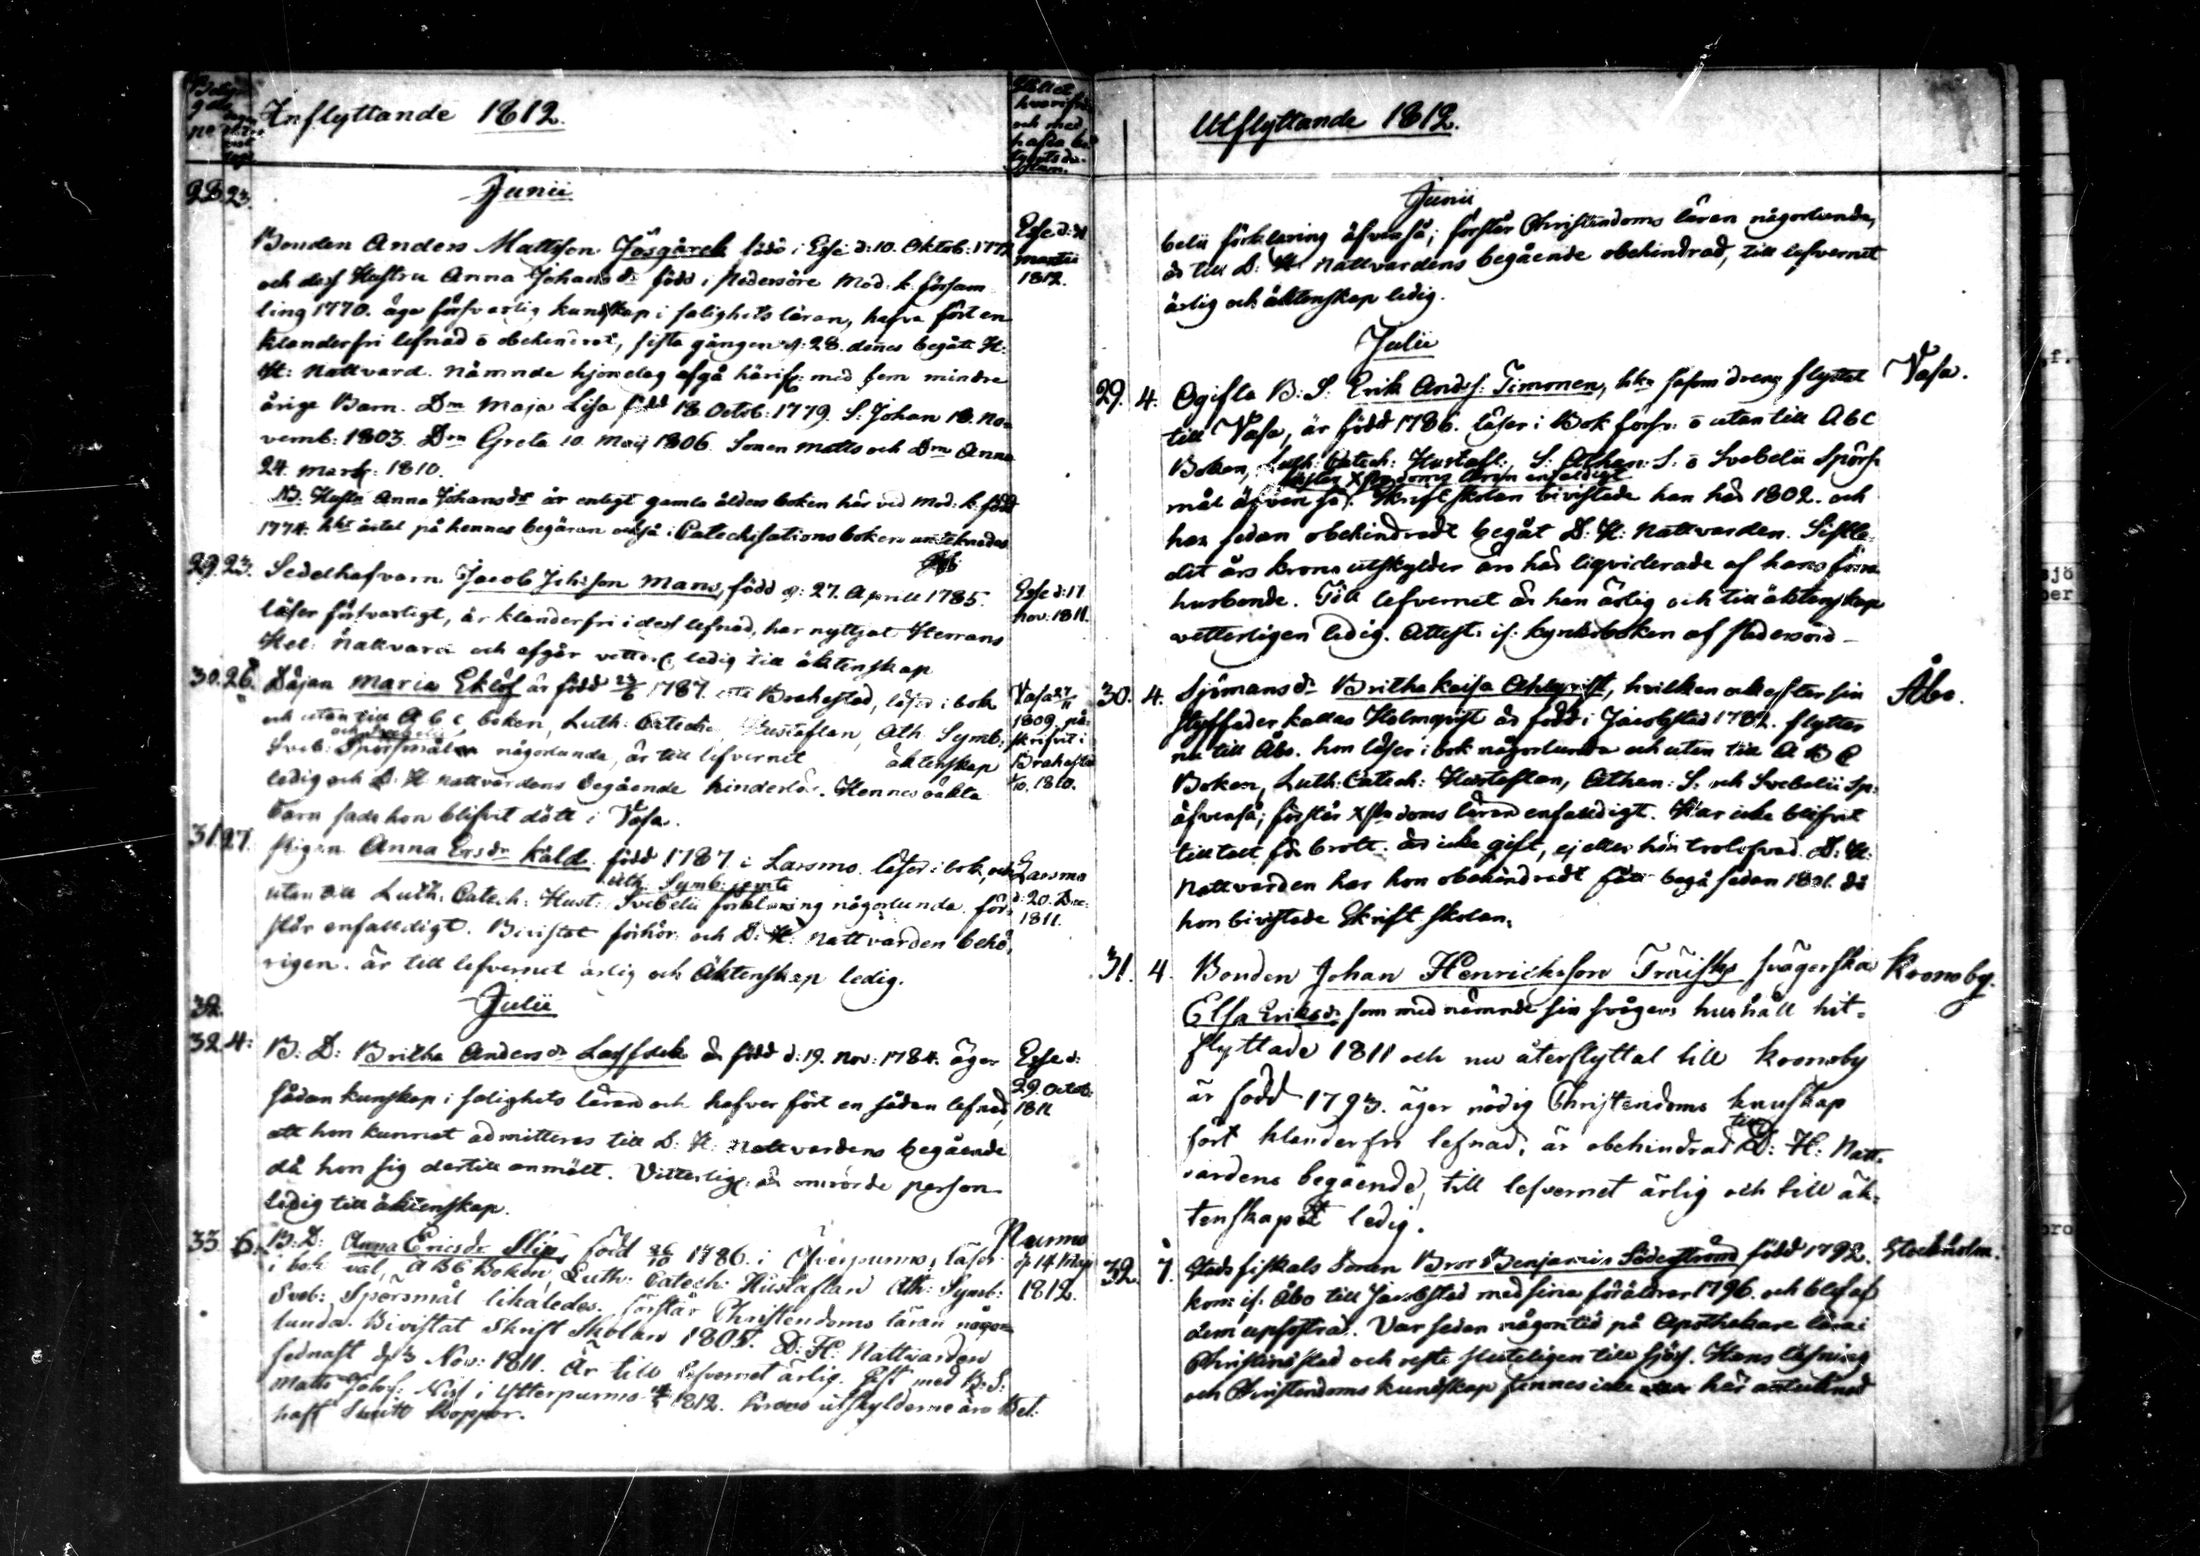 Inflyttande 1812.
Stället
och med
28. 23.
Junii
Bonden Anders Mattsson Jösgärek född i Esse d: 10. Oktob: 1772
och dess Hustru Anna Johans dr född i Pedersöre Mod: k. försam
ling 1770. äga försvarlig kunskap i salighets läran, hafva fört en
klanderfri lefnad o obehindrat, sista gången d: 28. denes begått H:
H: Nattvard. Nämnde hjon deg afgå härifr: med fem minder
årige Barn. Dn Maja Lisa född 18 Octob: 1779. S: Johan 18. No-
vemb: 1803. Drn Greta 10. Maij 1806. Sonen Matts och Drn Anna
24. Mars: 1810.
Esse d: 31
Martii
1812.
NB. Hustru Anna Johans dr är enligt gamla ålders boken här vid Mod: k. född
1774. hket årtal på hennes begäran också i Catechisations boken antecknades
29. 23. Sedelhafvarn Jacob Johsson Mans, född d: 27. Aprill 1785.
läser försvarligt, är klanderfri i dess lefnad, har nyttjat Herrans
Hel: Nattvard och afgår vetterl: ledig till äktenskap
Esse d: 17
Nov: 1811.
30. 26. Däjan Maria Eklöf är född 1787. Brahestad, läser i bok
och utan till A b c, boken, Luth: Catech: Hustaflan, Ath. Symb:
Sveb: Spörsmål någorlunda, är till lefvernet äktenskap
ledig och D: H: Nattvardens begående hinderlös. Hennes oäkta
barn sade hon blifvit dött i Vasa.
Vasa 27/11
1809. på
skrifvit i
Brahestad
1810.
31. 27. Pigan Anna Ersdr Käld född 1787 i Larsmo. läser i bok, och
Ath: Symb: jemte
utan till Luth. Catech: Hust: Svebelii förklaring någorlunda. för-
står enfalldigt. Bevistat förhör och D: H: Nattvarden behö-
rigen. är till lefvernet ärlig och Äktenskap ledig.
Larsmo
d: 20. Dec:
1811.
32.
Julii
32. 4: B: D: Britha Anders dr Lassfolk är född d: 19. Nov: 1784. äger
sådan kunskap i salighets läran och hafver fört en sådan lefnad,
att hon kunnat admitteras till D: H: Nattvardens begående
då hon sig dertill anmält. Vitterlig: är omrörde person
ledig till äktenskap.
Esse d:
29. Octob:
1811
33. 6. B: D: Anna Ericsdr Slip född 26/10 1786. i Öfverpurmo, läser
i bok väl, A B C Boken, Luth: Catech: Hustaflan Ath: Symb:
Sveb: Spörsmål likaledes. förstår Christendoms läran någor-
lunda. Bivistat Skrift Skolan 1805. D: H: Nattvarden
sednast d: 3 Nov: 1811. Är till lefvernet ärlig. Gift med B: S:
Matts Johss: Nisf i Ytterpurmo 1812. Krono utskylderne äro Bet:
haft Smitt Koppor.
Purmo
d: 14 Maji
1812.
Utflyttande 1812.
Junii
belii förklaring äfvenså; förstår Christendoms läran någorlunda,
är till D: H: Nattvardens begående obehindrad, till lefvernet
ärlig och äktenskap ledig.
Julii
29. 4. Ogifta B: S: Erik Andss: Timonen, hkn såsom dreng flyttat
till Vasa, är född 1786. läser i Bok försv: o utan till A b c
Boken, Luth: Catech: Hustafl:, S: Athan: S: o Svebelii Spörs-
förstår Xstendoms läran enfaldigt
mål äfven så. Skrift skolan bivistade han här 1802. och
har sedan obehindradt begåt D: H: Nattvarden. Sistle-
det års krono utskylder äro här liqviderade af hans förra
husbonde. Till lefvernet är han ärlig och till äktenskap
vetterligen ledig. Attest: if: kyrkoboken af Pedersöre
Vasa.
30. 4. Sjömans dr Britha Kaisa Ahlqvist, hvilken ock efter sin
styffader kallas Holmqvist är född i Jacobstad 1782. flyttar
nu till Åbo. hon läser i bok någorlunda och utan till A B C
Boken, Luth: Catech: Hustaflan, Athan: S: och Svebelii Sp:
äfvenså; förstår Xstendoms läran enfalldigt. Har icke blifvit
tilltalt för brott. är icke gift, ej eller här trolofvad. D: H:
Nattvarden har hon obehindradt fått begå sedan 1801. då
hon bivistade Skrift skolan.
Åbo.
31. 4. Bonden Johan Henricksson Träisks svägerska
Elsa Eriks dr som med nämnde sin svågers hushåll hit-
flyttade 1811 och nu återflyttat till Kronoby
är född 1793. äger nödig Christendoms kunskap
fört klanderfri lefnad, är obehindrad till D: H: Natt-
vardens begående, till lefvernet ärlig och till äk-
tenskapet ledig.
Kronoby.
32. 7. Stads fiskals Sonen Bror Benjamin Söderström född 1792.
kom if: Åbo till Jacobstad med sina föräldrar 1796. och blef af
dem upfostrad. Var sedan någon tid på Apothekare lära i
Christinæstad och reste sluteligen till sjös. Hans läsning
och Christendoms kundskap finnes icke här antecknad
Stockholm.